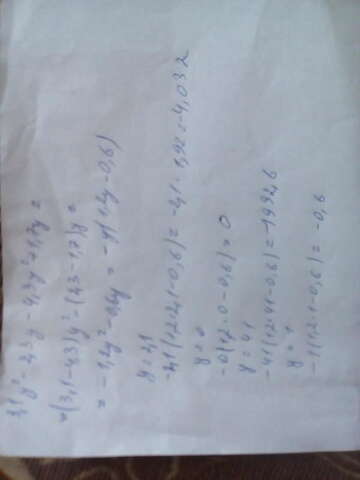 3,1y²-2,3y-4,3y²+1,7y=
=(3,1-4,3)y²-(2,3-1,7)y=
=-1,2y²-0,6y=-y(1,2y-0,6)
y=2,1
-2,1(1,2·2,1-0,6)=-2,1·1,92=-4,032
y=0
-0(1,2·0-0,6)=0
y=41
-41(1,2·41-0,6)=-1992,6
y=1
-1(1,2·1-0,6)=-0,6